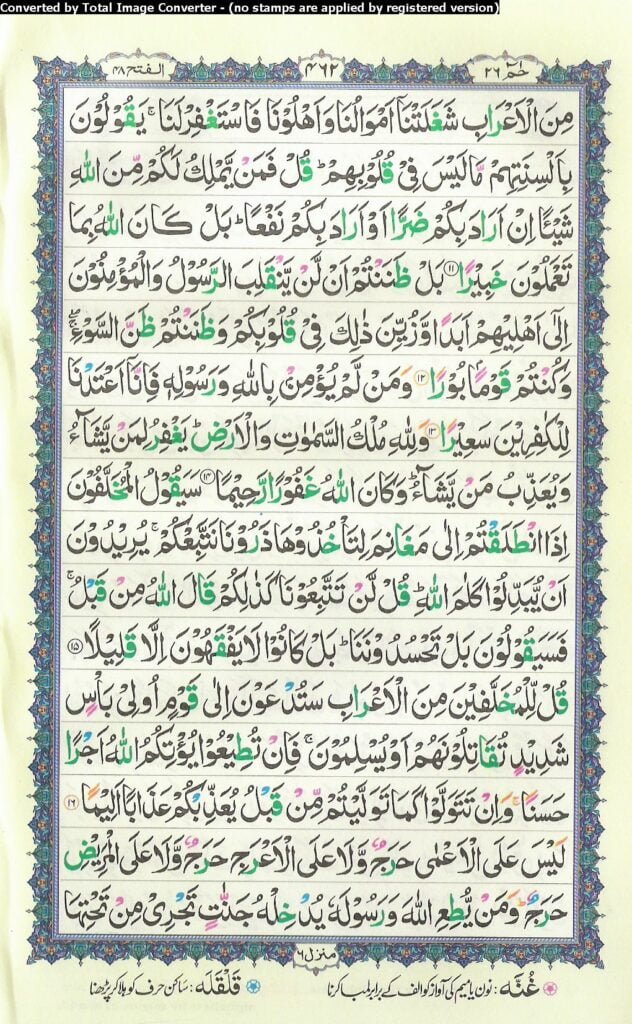 Converted by Total Image Converter - (no stamps are applied by registered version)
حٰمٓ ٢٦
٤٦٢
الفتح ٤٨
مِنَ الْاَعْرَابِ شَغَلَتْنَاۤ اَمْوَالُنَا وَاَهْلُوْنَا فَاسْتَغْفِرْ لَنَا ۚ يَقُوْلُوْنَ
بِاَلْسِنَتِهِمْ مَّا لَيْسَ فِيْ قُلُوْبِهِمْ ؕ قُلْ فَمَنْ يَّمْلِكُ لَكُمْ مِّنَ اللّٰهِ
شَيْـًٔا اِنْ اَرَادَ بِكُمْ ضَرًّا اَوْ اَرَادَ بِكُمْ نَفْعًا ؕ بَلْ كَانَ اللّٰهُ بِمَا
تَعْمَلُوْنَ خَبِيْرًا ۝۱۱ بَلْ ظَنَنْتُمْ اَنْ لَّنْ يَّنْقَلِبَ الرَّسُوْلُ وَالْمُؤْمِنُوْنَ
اِلٰۤى اَهْلِيْهِمْ اَبَدًا وَّزُيِّنَ ذٰلِكَ فِيْ قُلُوْبِكُمْ وَظَنَنْتُمْ ظَنَّ السَّوْءِ ۖۚ
وَكُنْتُمْ قَوْمًۢا بُوْرًا ۝۱۲ وَمَنْ لَّمْ يُؤْمِنْۢ بِاللّٰهِ وَرَسُوْلِهٖ فَاِنَّاۤ اَعْتَدْنَا
لِلْكٰفِرِيْنَ سَعِيْرًا ۝۱۳ وَلِلّٰهِ مُلْكُ السَّمٰوٰتِ وَالْاَرْضِ ؕ يَغْفِرُ لِمَنْ يَّشَآءُ
وَيُعَذِّبُ مَنْ يَّشَآءُ ؕ وَكَانَ اللّٰهُ غَفُوْرًا رَّحِيْمًا ۝۱۴ سَيَقُوْلُ الْمُخَلَّفُوْنَ
اِذَا انْطَلَقْتُمْ اِلٰى مَغَانِمَ لِتَاْخُذُوْهَا ذَرُوْنَا نَتَّبِعْكُمْ ۚ يُرِيْدُوْنَ
اَنْ يُّبَدِّلُوْا كَلٰمَ اللّٰهِ ؕ قُلْ لَّنْ تَتَّبِعُوْنَا كَذٰلِكُمْ قَالَ اللّٰهُ مِنْ قَبْلُ ۚ
فَسَيَقُوْلُوْنَ بَلْ تَحْسُدُوْنَنَا ؕ بَلْ كَانُوْا لَا يَفْقَهُوْنَ اِلَّا قَلِيْلًا ۝۱۵
قُلْ لِّلْمُخَلَّفِيْنَ مِنَ الْاَعْرَابِ سَتُدْعَوْنَ اِلٰى قَوْمٍ اُولِيْ بَاْسٍ
شَدِيْدٍ تُقَاتِلُوْنَهُمْ اَوْ يُسْلِمُوْنَ ۚ فَاِنْ تُطِيْعُوْا يُؤْتِكُمُ اللّٰهُ اَجْرًا
حَسَنًا ۚ وَاِنْ تَتَوَلَّوْا كَمَا تَوَلَّيْتُمْ مِّنْ قَبْلُ يُعَذِّبْكُمْ عَذَابًا اَلِيْمًا ۝۱۶
لَيْسَ عَلَى الْاَعْمٰى حَرَجٌ وَّلَا عَلَى الْاَعْرَجِ حَرَجٌ وَّلَا عَلَى الْمَرِيْضِ
حَرَجٌ ؕ وَمَنْ يُّطِعِ اللّٰهَ وَرَسُوْلَهٗ يُدْخِلْهُ جَنّٰتٍ تَجْرِيْ مِنْ تَحْتِهَا
منزل ۶
غُنَّه : نون یا میم کی آواز کو الف کے برابر لمبا کرنا
قَلْقَلَه : ساکن حرف کو ہلا کر پڑھنا